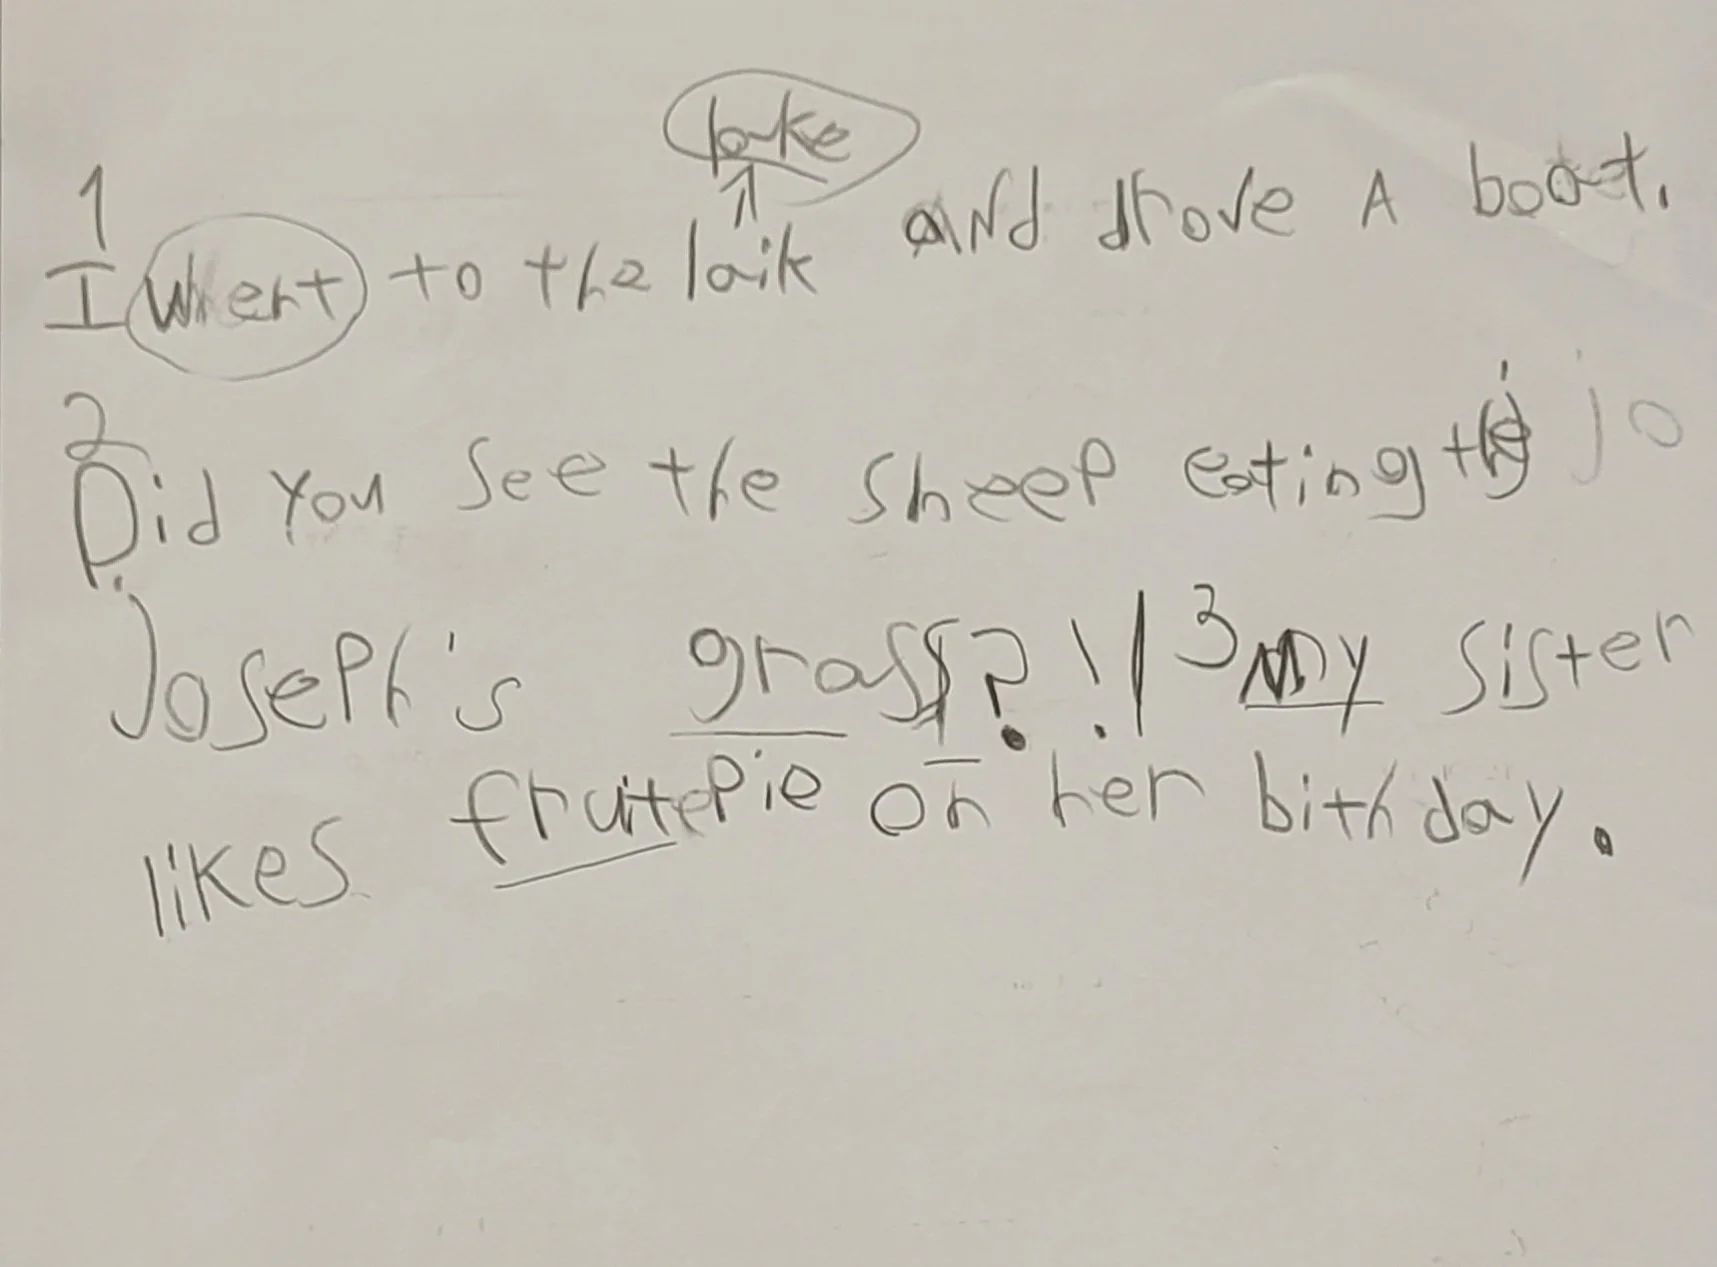 lake
1
I Whent to the laik and drove A boat.
2
Did You See the sheep eating the jo
Joseph's grass?!|3 My sister
likes fruite pie on her bithday.